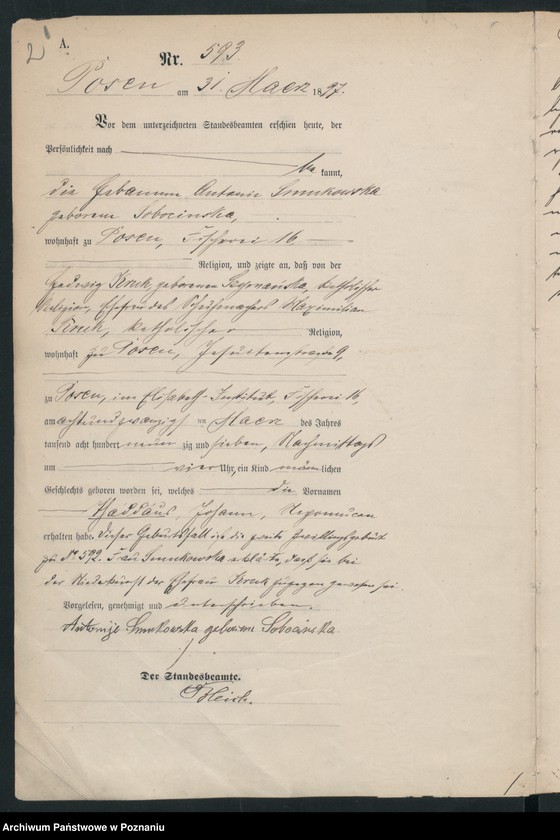 2
A.
Nr. 593.
Posen am 31 Maerz 1897.
Vor dem unterzeichneten Standesbeamten erschien heute, der
Persönlichkeit nach
bekannt,
die Hebamme Antonie Smukowska
geborene Sobocinska,
wohnhaft zu Posen, Fischerei 16
Religion, und zeigte an, daß von der
Hedwig Kruk, geborenen katholischer
Religion, Ehefrau des Schuhmachers Maximilian
Kruk, katholischer Religion,
wohnhaft zu Posen, Jesuitenstrasse 9,
zu Posen, im Elisabeth-Institut, Fischerei 16,
am achtundzwanzigsten Maerz des Jahres
tausend acht hundert neunzig und sieben, Nachmittags
um vier Uhr, ein Kind männlichen
Geschlechts geboren worden sei, welches die Vornamen
Thaddäus Johann, Nepomucen
erhalten habe. Dieser Geburtsfall ist die zweite Zwillingsgeburt
zu No 592. Frau Smukowska erklärte, dass sie bei
der Niederkunft der Ehefrau Kruk zugegen gewesen sei.
Vorgelesen, genehmigt und unterschrieben.
Antonije Smukowska geborene Sobocinska
Der Standesbeamte.
Archiwum Państwowe w Poznaniu